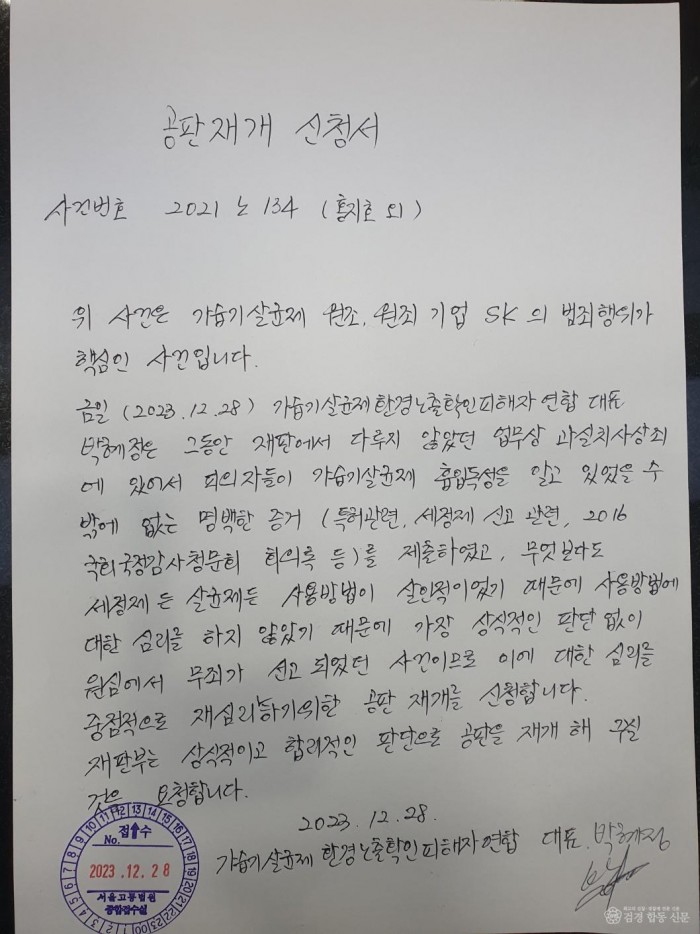 공판재개 신청서
사건번호 2021 노 134 (홍지호 외)
위 사건은 가습기살균제 원조, 원죄 기업 SK의 범죄행위가
핵심인 사건입니다.
금일 (2023.12.28) 가습기살균제환경노출확인피해자연합 대표
박혜정은 그동안 재판에서 다루지 않았던 업무상 과실치사상죄
에 있어서 피의자들이 가습기살균제 흡입독성을 알고 있었을 수
밖에 없는 명백한 증거 (특허관련, 세정제 신고 관련, 2016
국회국정감사청문회 회의록 등)를 제출하였고, 무엇보다도
세정제든 살균제든 사용방법이 살인적이었기 때문에 사용방법에
대한 심리를 하지 않았기 때문에 가장 상식적인 판단 없이
원심에서 무죄가 선고 되었던 사건이므로 이에 대한 심리를
중점적으로 재심리하기위한 공판 재개를 신청합니다.
재판부는 상식적이고 합리적인 판단으로 공판을 재개 해 주실
것을 요청합니다.
2023.12.28.
가습기살균제 환경노출확인피해자연합 대표. 박혜정
No. 접수
2023.12.28
서울고등법원
종합접수실
검경 합동 신문